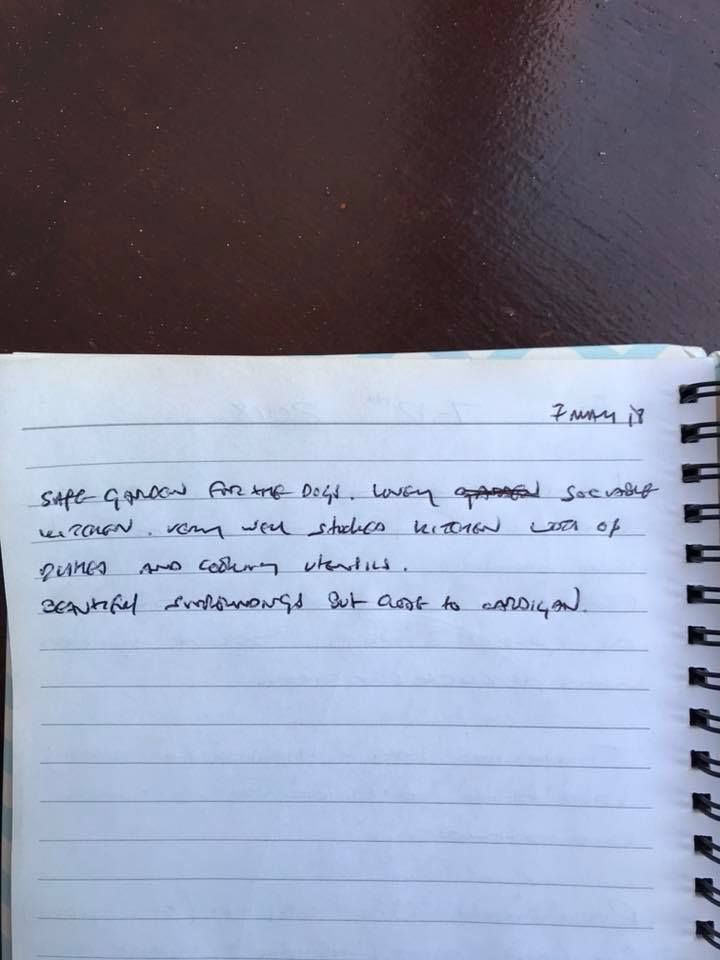 7 MAY 18
SAFE GARDEN FOR THE DOGS. LOVELY GARDEN SOCIABLE
KITCHEN. VERY WELL STOCKED KITCHEN LOTS OF
DISHES AND COOKING UTENSILS.
BEAUTIFUL SURROUNDINGS BUT CLOSE TO CARDIGAN.